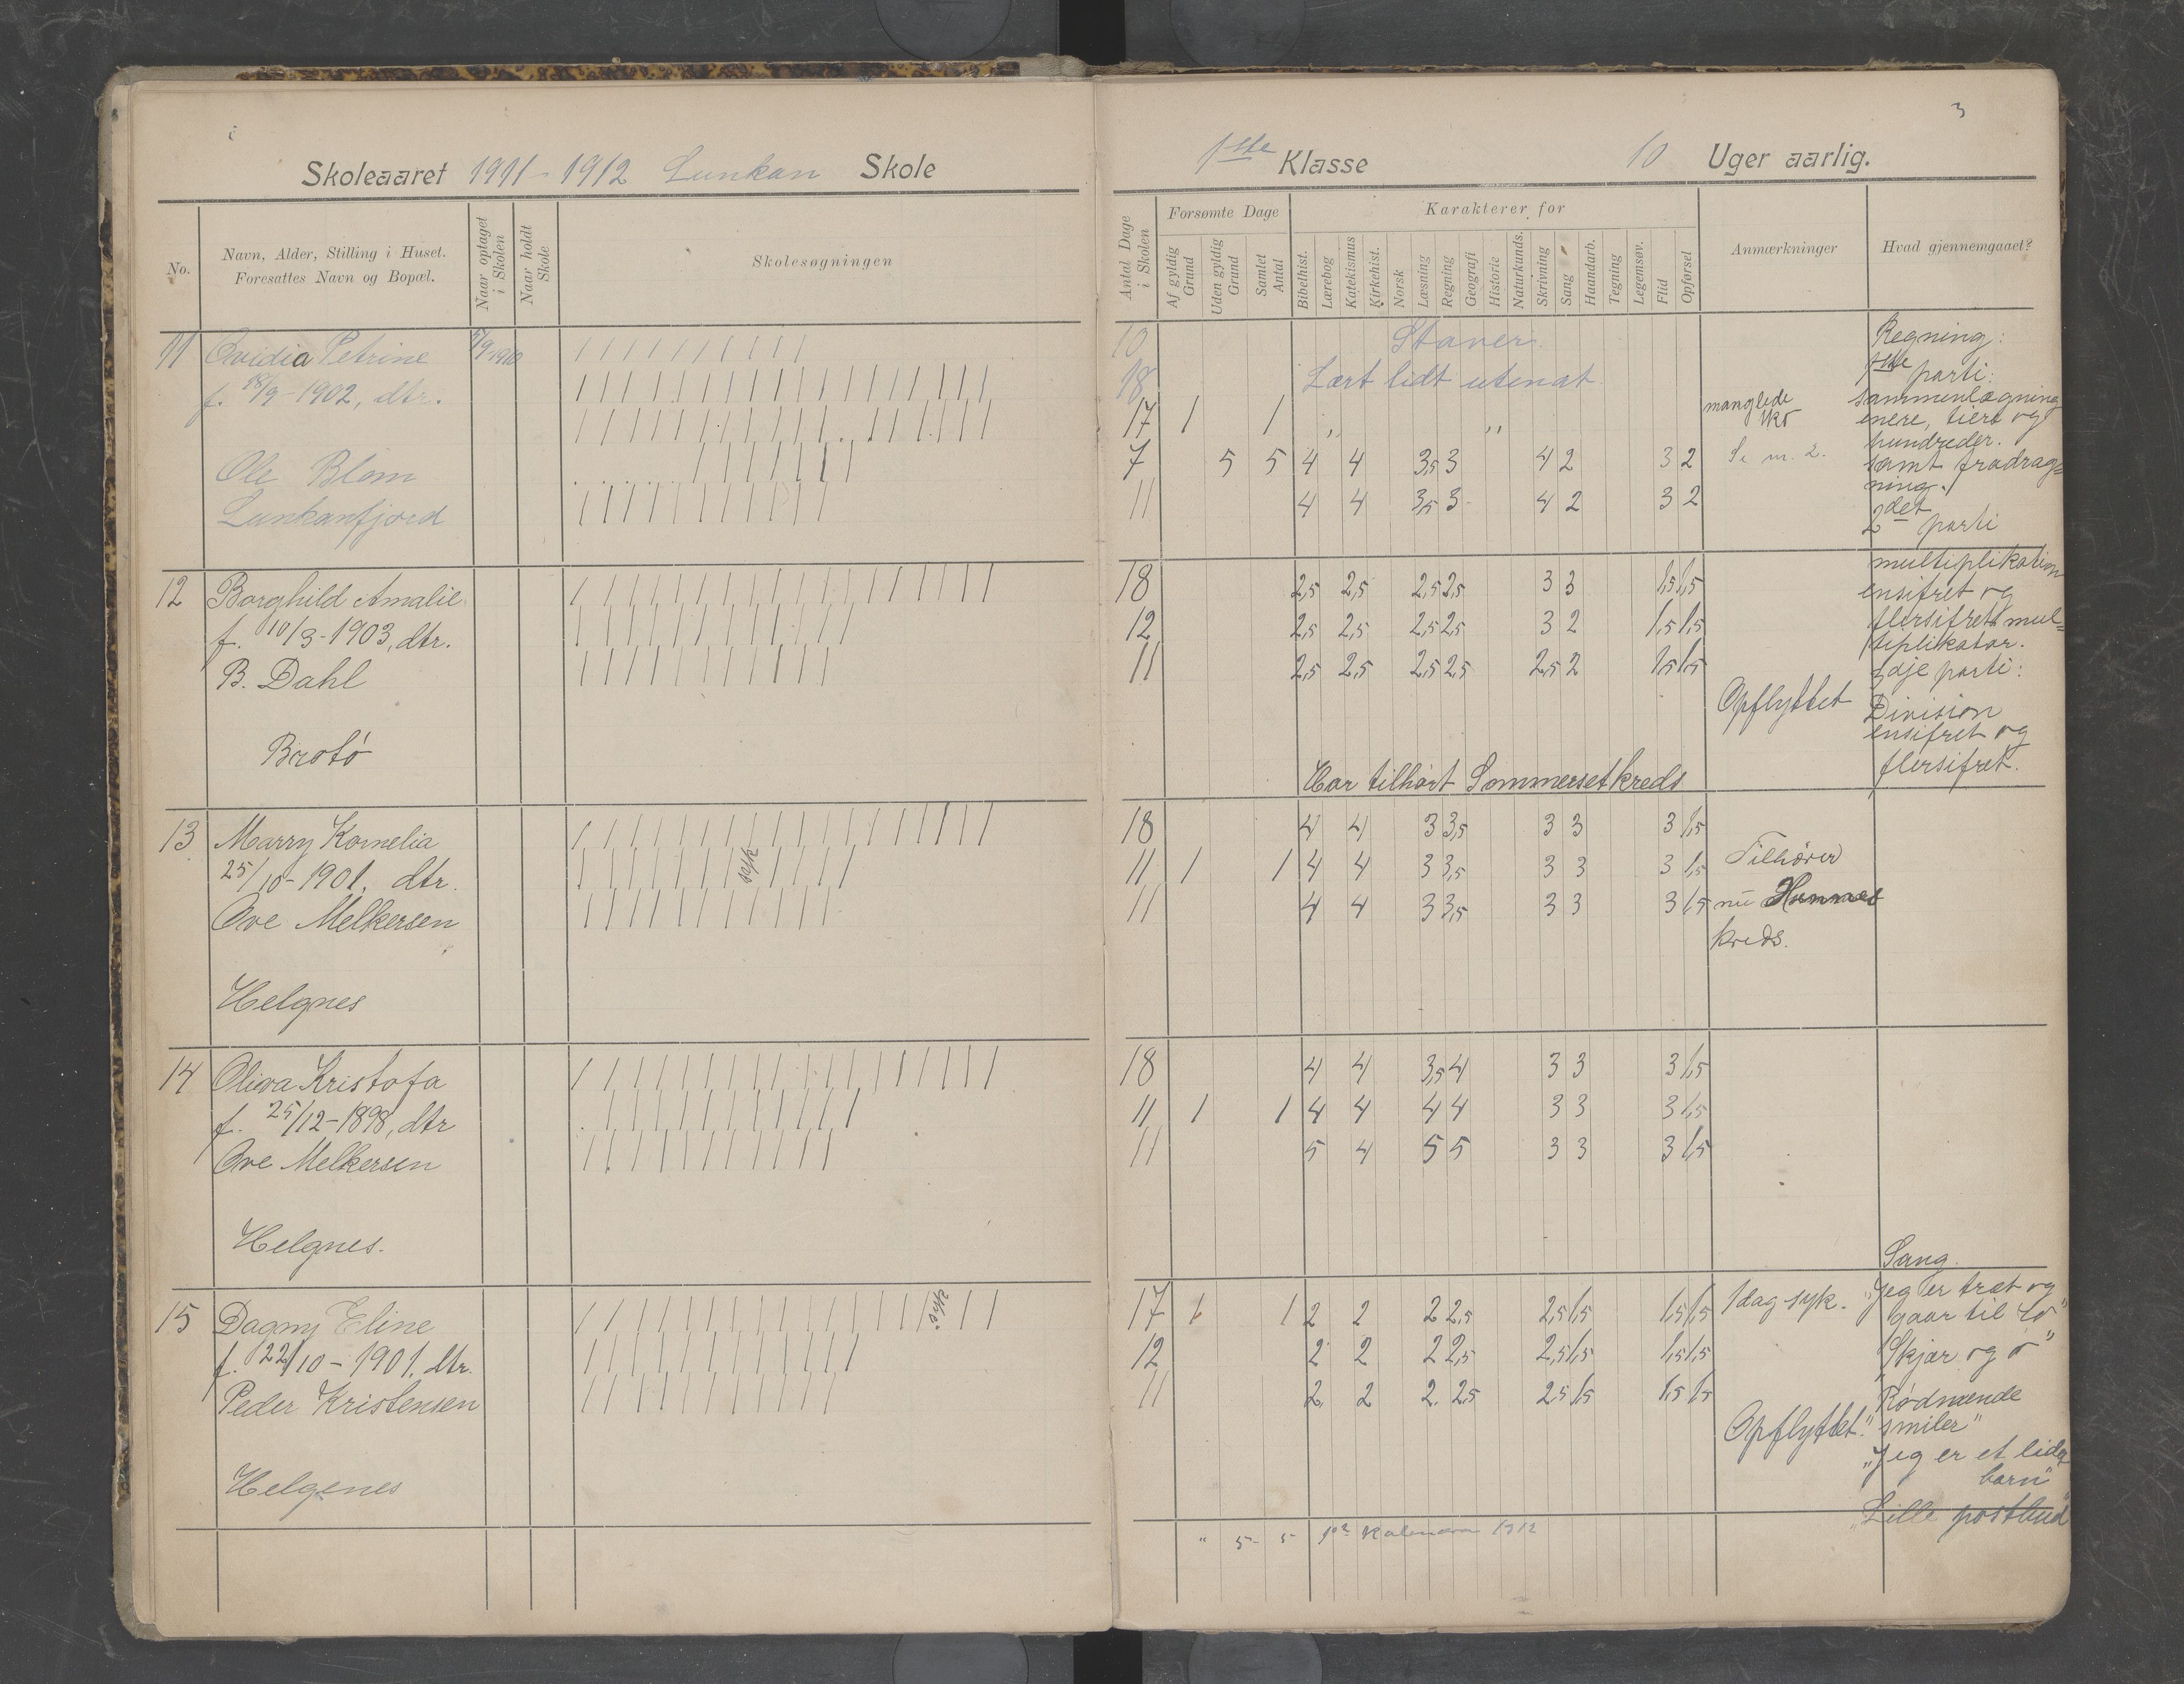 3
Skoleaaret 1911-1912 Lunkan Skole
1ste Klasse 10 Uger aarlig.
No.
Navn, Alder, Stilling i Huset.
Foresattes Navn og Bopæl.
Naar optaget i Skolen
Naar holdt Skole
Skolesøgningen
Antal Dage i Skolen
Forsømte Dage
Af gyldig Grund
Uden gyldig Grund
Samlet Antal
Karakterer for
Bibelhist.
Lærebog
Katekismus
Kirkehist.
Norsk
Læsning
Regning
Geografi
Historie
Naturkunds.
Skrivning
Sang
Haandarb.
Tegning
Legemsøv.
Flid
Opførsel
Anmærkninger
Hvad gjennemgaaet?
11 Ovidia Petrine
f. 18/9-1902, dtr.
Ole Blom
Lunkanfjord
10 Staver.
18 Lært lidt utenat
17 1 1 ,, ,, manglede sko
7 5 5 4 4 3,5 3 4 2 3 2 Se nr. 2.
11 4 4 3,5 3 4 2 3 2
12 Borghild Amalie
f. 10/3-1903, dtr.
B. Dahl
Brotø
18 2,5 2,5 2,5 2,5 3 3 1,5 1,5
12 2,5 2,5 2,5 2,5 3 2 1,5 1,5
11 2,5 2,5 2,5 2,5 2,5 2 1,5 1,5
Opflyttet
Har tilhørt Sommerset kreds
13 Marry Kornelia
25/10-1901, dtr.
Ove Melkersen
Helgnes
syk
18 4 4 3 3,5 3 3 3 1,5
11 1 1 4 4 3 3,5 3 3 3 1,5
11 4 4 3 3,5 3 3 3 1,5
Tilhører
nu
kreds.
14 Oliva Kristofa
f. 25/12-1898, dtr
Ove Melkersen
Helgnes.
18 4 4 3,5 4 3 3 3 1,5
11 1 1 4 4 4 4 3 3 3 1,5
11 5 4 5 5 3 3 3 1,5
15 Dagny Eline
f. 22/10-1901, dtr.
Peder Kristensen
Helgenes
syk.
17 1 1 2 2 2 2,5 2,5 1,5 1,5 1,5 1 dag syk.
12 2 2 2 2,5 2,5 1,5 1,5 1,5
11 2 2 2 2,5 2,5 1,5 1,5 1,5
Opflyttet.
" 5 5 1912
Regning:
1ste parti:
sammenlægning
enere, tiere og
hundreder.
samt fradrag=
ning.
2det parti
multiplikation
ensifret og
flersifret mul=
tiplikator.
3dje parti:
Division
ensifret og
flersifret.
Sang
"Jeg er træt og
gaar til ro"
"Skjær og ø"
"Rødmende
smiler"
"Jeg er et lidet
barn"
"Lille postbud"